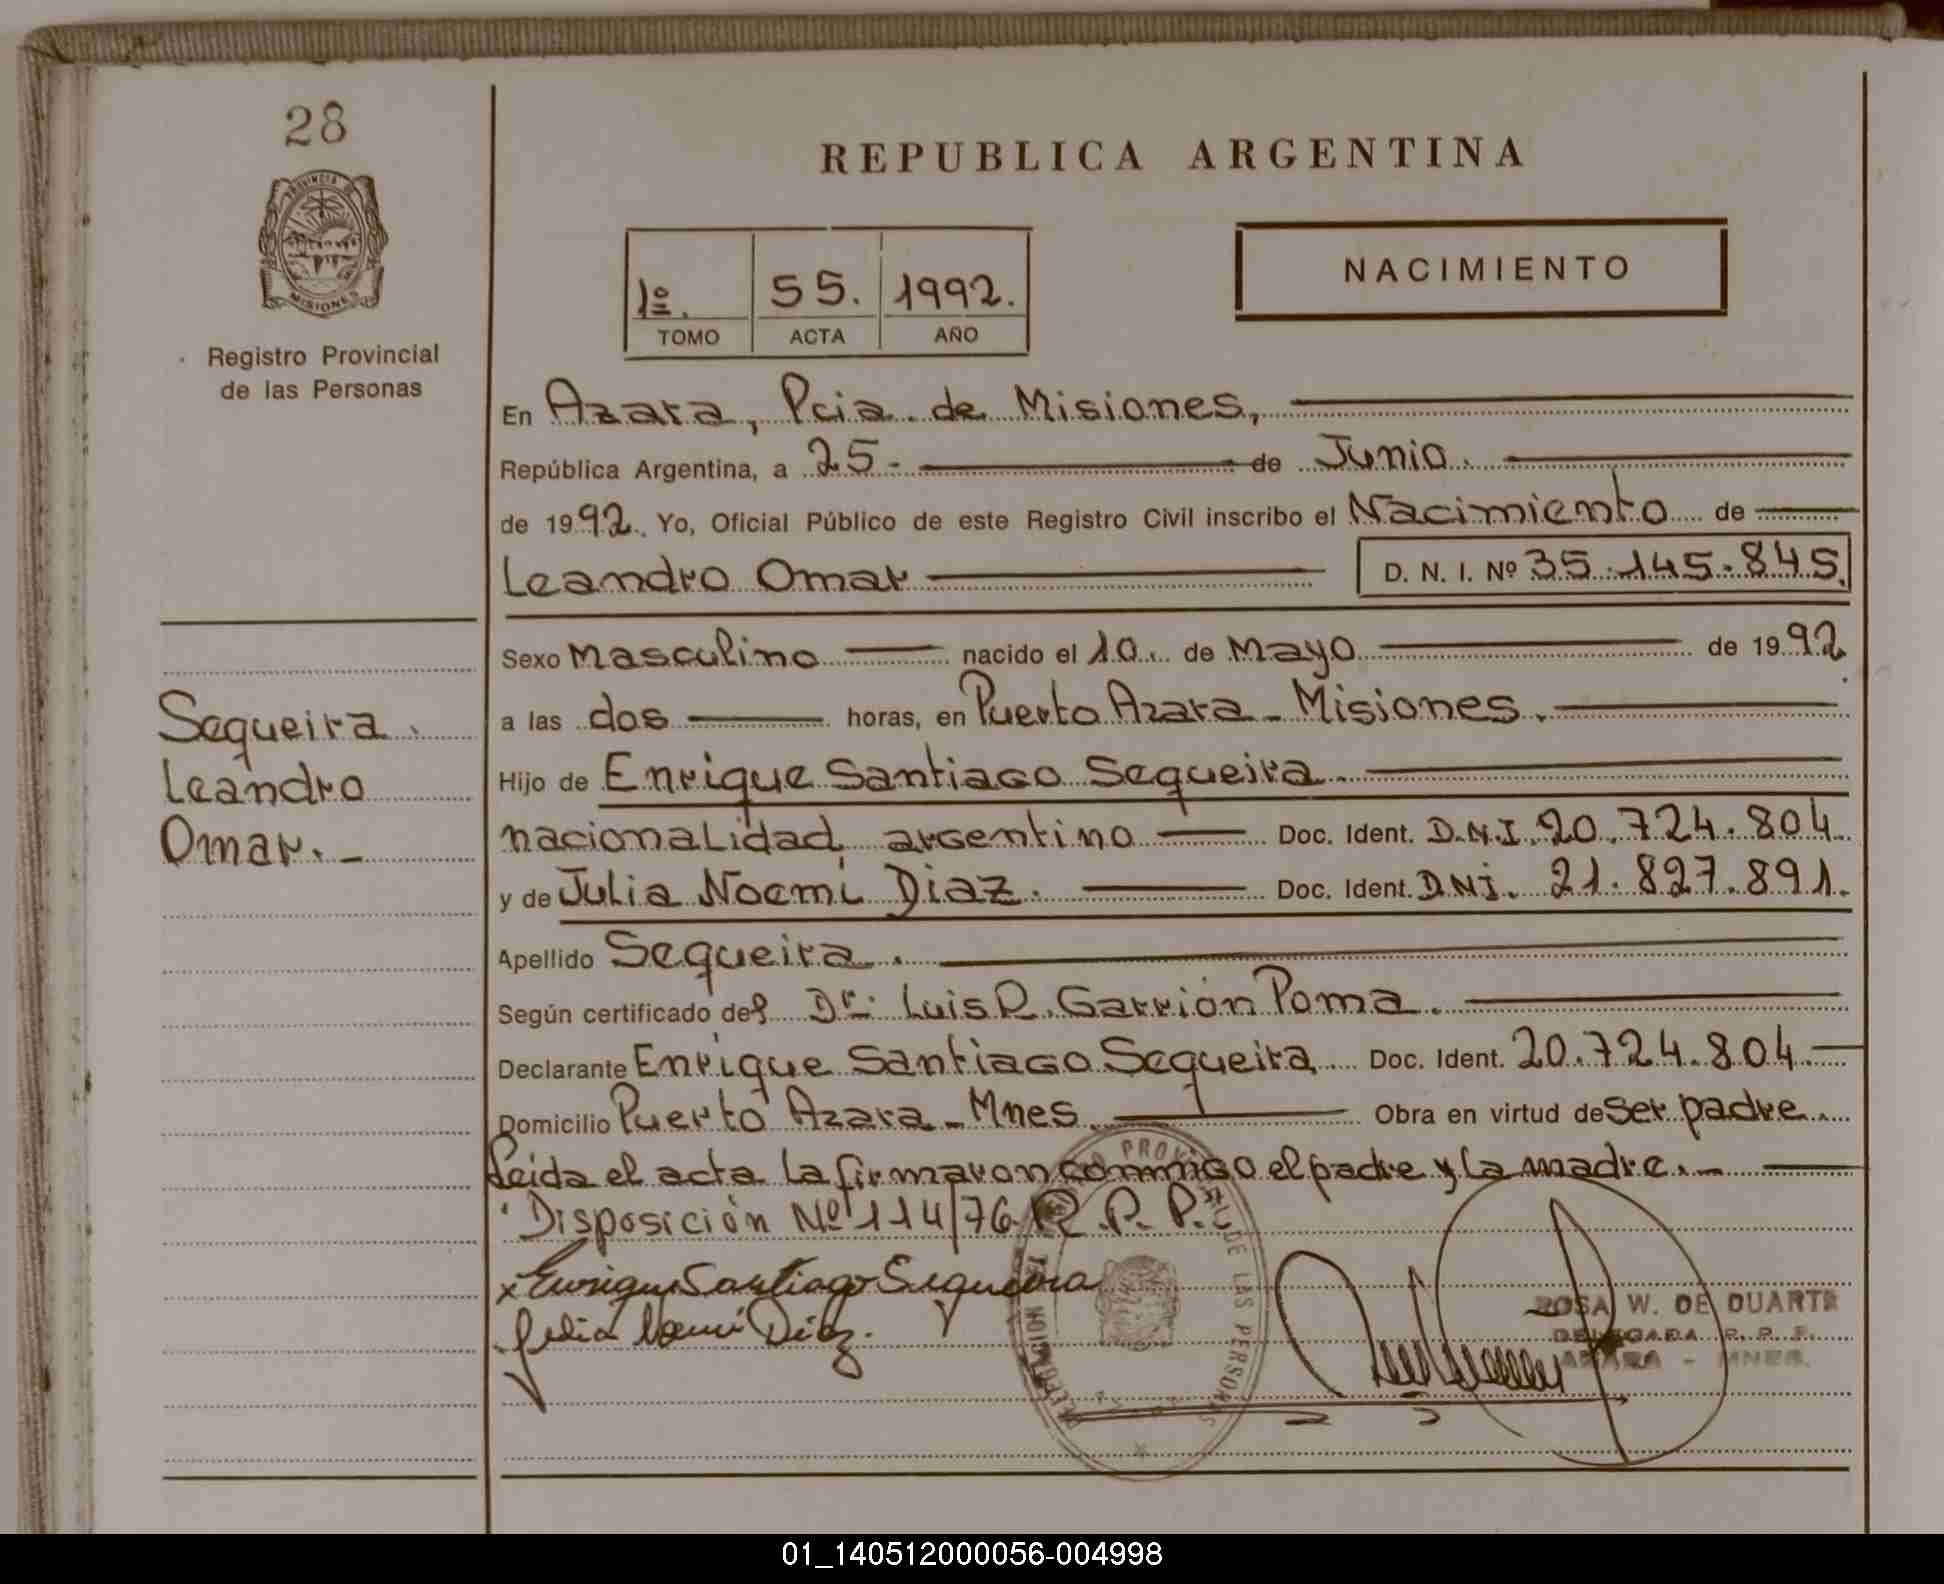 28
PROVINCIA DE
MISIONES
Registro Provincial
de las Personas
Sequeira.
Leandro
Omar. -
REPUBLICA ARGENTINA
1º. 55. 1992.
TOMO ACTA AÑO
NACIMIENTO
En Azara, Pcia. de Misiones,
República Argentina, a 25- de Junio.
de 1992. Yo, Oficial Público de este Registro Civil inscribo el Nacimiento de
Leandro Omar D. N. I. Nº 35.145.845.
Sexo Masculino nacido el 10. de Mayo de 1992
a las dos horas, en Puerto Azara - Misiones.
Hijo de Enrique Santiago Sequeira.
nacionalidad argentino Doc. Ident. D.N.I. 20.724.804
y de Julia Noemí Diaz. Doc. Ident. DNI. 21.827.891.
Apellido Sequeira.
Según certificado del Dr. Luis R. Garrión Poma.
Declarante Enrique Santiago Sequeira Doc. Ident. 20.724.804.
Domicilio Puerto Azara - Mnes. Obra en virtud de ser padre.
Leida el acta la firmaron conmigo el padre y la madre. -
Disposición Nº 114/76 R.P.P.
x Enrique Santiago Sequeira
Julia Noemí Díaz.
ROSA W. DE DUARTE
DELEGADA R. P. P.
AZARA - MNES.
01_140512000056-004998